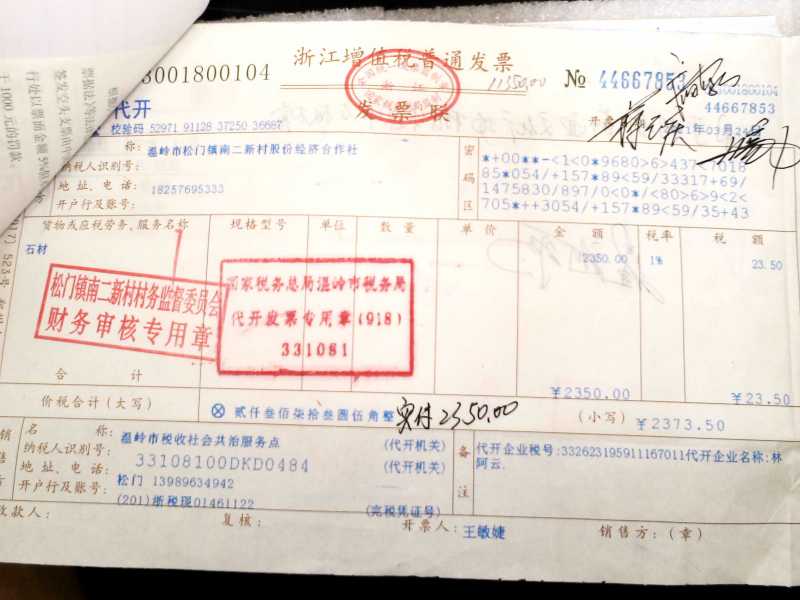 浙江增值税普通发票
3001800104
11350.00
№ 44667853
3001800104
代开
发票联
44667853
校验码 52971 91128 37250 36687
名 称: 温岭市松门镇南二新村股份经济合作社
纳税人识别号:
地 址、电 话: 18257695333
开户行及账号:
密码区
*+00**-<1<0*9680>6>437<7018
85*054/+157*89<59/33317+69/
1475830/897/0<0*/<80>6>9<2<
705*++3054/+157*89<59/35+43
货物或应税劳务、服务名称 规格型号 单位 数量 单价 金额 税率 税额
石材 2350.00 1% 23.50
松门镇南二新村村务监督委员会
财务审核专用章
国家税务总局温岭市税务局
代开发票专用章(918)
331081
合计 ¥2350.00 ¥23.50
价税合计(大写) ⊗ 贰仟叁佰柒拾叁圆伍角整 实付2350.00 (小写) ¥2373.50
名 称: 温岭市税收社会共治服务点 (代开机关)
纳税人识别号: 33108100DKD0484 (代开机关)
地 址、电 话: 松门 13989634942
开户行及账号: (201)浙税现01461122 (完税凭证号)
备注
代开企业税号:332623195911167011代开企业名称:林
阿云.
收款人: 复核: 开票人: 王敏婕 销售方:(章)
于1000元的罚款.